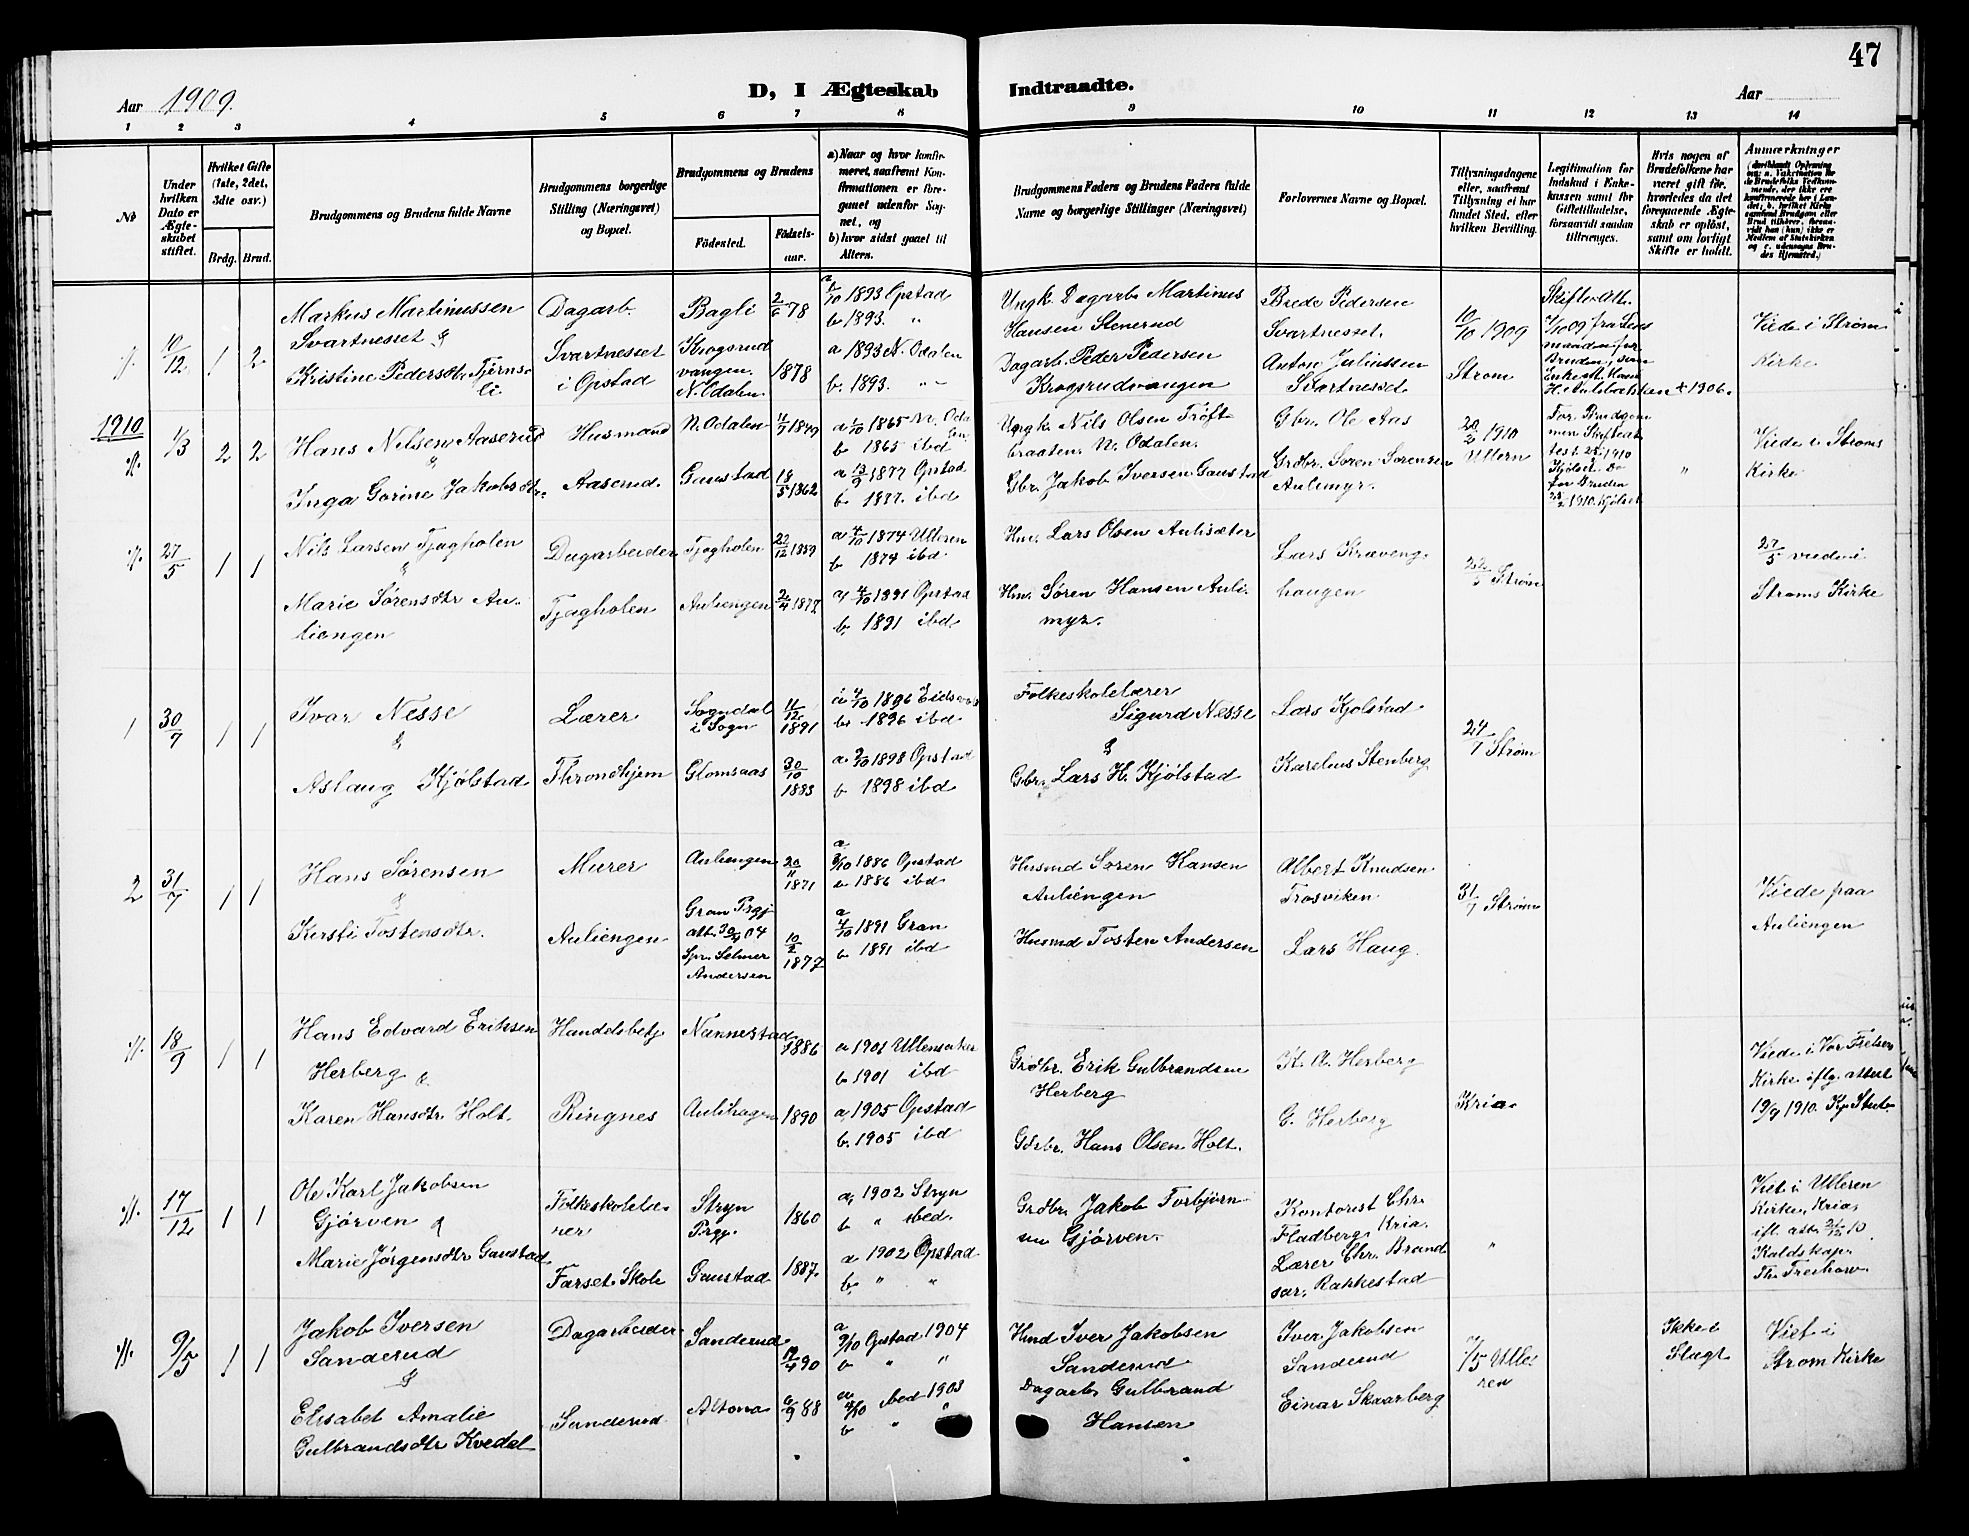 47
Aar 1909.
D, I Ægteskab Indtraadte.
Aar
1 2 3 4 5 6 7 8 9 10 11 12 13 14
No
Under hvilken Dato er Ægteskabet stiftet.
Hvilket Gifte (1ste, 2det, 3die osv.)
Brdg. Brud.
Brudgommens og Brudens fulde Navne
Brudgommens borgerlige Stilling (Næringsvei) og Bopæl.
Brudgommens og Brudens
Födested.
Födselsaar.
a) Naar og hvor konfirmeret, saafremt Konfirmationen er foregaaet udenfor Sognet, og
b) hvor sidst gaaet til Alters.
Brudgommens Faders og Brudens Faders fulde Navne og borgerlige Stillinger (Næringsvei)
Forlovernes Navne og Bopæl.
Tillysningsdagene eller, saafremt Tillysning ei har fundet Sted, efter hvilken Bevilling.
Legitimation for Indskud i Enkekassen samt for Giftetilladelse, forsaavidt saadan tiltrænges.
Hvis nogen af Brudefolkene har været gift før, hvorledes da det foregaaende Ægteskab er opløst, samt om lovligt Skifte er holdt.
Anmærkninger
10/12 1 2
Markus Martinussen
Svartnesset &
Kristine Pedersdtr. Tjernsli
Dagarb.
Svartnesset
i Opstad
Bagli
Krogsrud
vangen
N. Odalen
2/6 78
1878
a 1/10 1893 Opstad
b 1893. "
a 1893 N. Odalen
b. 1893. "
Ungk. Dagarb. Martinus
Hansen Stenerud
Dagarb. Peder Pedersen
Krogsrudvangen
Brede Pedersen
Svartnesset.
Anton Juliussen
Svartnesset
10/10 1909
Strøm
Skifteatt.
7/10 09 fra Lens
manden for
Bruden, som
Enke eft. Hans
H. Aulibakken + 1906.
Viede i Strøm
Kirke
1910
1/3 2 2
Hans Nilsen Aaserud
&
Inga Gorine Jakobsdtr.
Husmand
Aaserud.
N. Odalen
Gaustad
4/7 1849
18/5 1862
a 1/10 1865 N. Oda
len
b 1865 ibd
a 12/9 1877 Opstad
b 1877. ibd
Ungk. Nils Olsen Trøft
braaten. N. Odalen.
Gbr. Jakob Iversen Gaustad
Gbr. Ole Aas
Grdbr. Søren Sørensen
Aulimyr.
20/2 1910
Ullern
For Brudgom
men Skifteat
test 1910
Kjølset Do
for Bruden
1910. Kjølset
"
Viede i Strøms
Kirke
27/5 1 1
Nils Larsen Tjagholen
&
Marie Sørensdtr Au-
liengen
Dagarbeider
Tjagholen
Tjagholen
Auliengen
22/12 1859
2/4 1877
a 4/10 1874 Ulleren
b 1874 ibd
a) 4/10 1891 Opstad
b. 1891 ibd.
Hm. Lars Olsen Aulisæter
Hm. Søren Hansen Auli-
myr.
Lars Kræveng-
haugen
22/5 Strøm
27/5 viede i
Strøms Kirke
1 30/7 1 1
Ivar Nesse
&
Aslaug Kjølstad
Lærer
Throndhjem
Sogndal
i Sogn
Glomsaas
11/12 1891
30/10 1883
a 4/10 1896 Eidsvold
b. 1896 ibd
a. 2/10 1898 Opstad
b 1898 ibd
Folkeskolelærer
Sigurd Nesse
&
Gbr. Lars H. Kjølstad
Lars Kjølstad
Karelius Stenberg
24/7 Strøm
2 31/7 1 1
Hans Sørensen
&
Kirsti Tostensdtr.
Murer
Auliengen
Auliengen
Gran Prgj
att. 30/4 04
Spr. Selmer
Andersen
20/11 1871
10/2 1877
a 3/10 1886 Opstad
b 1886 ibd
a 4/10 1891 Gran
b 1891 ibd
Husmd Søren Hansen
Auliengen
Husmd Tosten Andersen
Albert Knudsen
Trosviken
Lars Haug.
31/7 Strøm
Viede paa
Auliengen
18/9 1 1
Hans Edvard Eriksen
Herberg &
Karen Hansdtr Holt.
Handelsbetj
Ringnes
Nannestad
Aulihagen
1886
1890
a 1901 Ullensaker
b 1901 ibd
a. 1905 Opstad
b. 1905 ibd
Grdbr. Erik Gulbrandsen
Herberg
Gdrbr. Hans Olsen Holt.
K. A. Herberg
G. Herberg
Kria.
Viede i Vor Frelsers
Kirke iflg. attest
19/9 1910. Kp. Stub
17/12 1 1
Ole Karl Jakobsen
Gjørven &
Marie Jørgensdtr Gaustad
Folkeskolelæ
rer
Farset Skole
Stryn
Prgj.
Gaustad
1860
1887.
a. 1902 Stryn
b " ibed.
a 1902 Opstad
b. " "
Grdbr. Jakob Torbjørn
sen Gjørven.
Kontorist Chr.
Fladberg Kria.
Lærer Chr. Brand
sar. Rakkestad
"
Viet i Ulleren
Kirke, Kria
ifl. att. 21/12 10
Kaldskap.
Th. Treihow.
9/5 1 1
Jakob Iversen
Sanderud
&
Elisabet Amalie
Gulbrandsdtr Kvedal
Dagarbeider
Sanderud
Sanderud
Altona
17/4 90
6/9 88
a 9/10 Opstad 1904
b " "
a 4/10 ibed 1903
b " "
Hmd Iver Jakobsen
Sanderud
Dagarb. Gulbrand
Hansen
Iver Jakobsen
Sanderud
Einar Skaarberg
7/5 Ulle
ren
Ikke i
Slægt
Viet i
Strøm Kirke